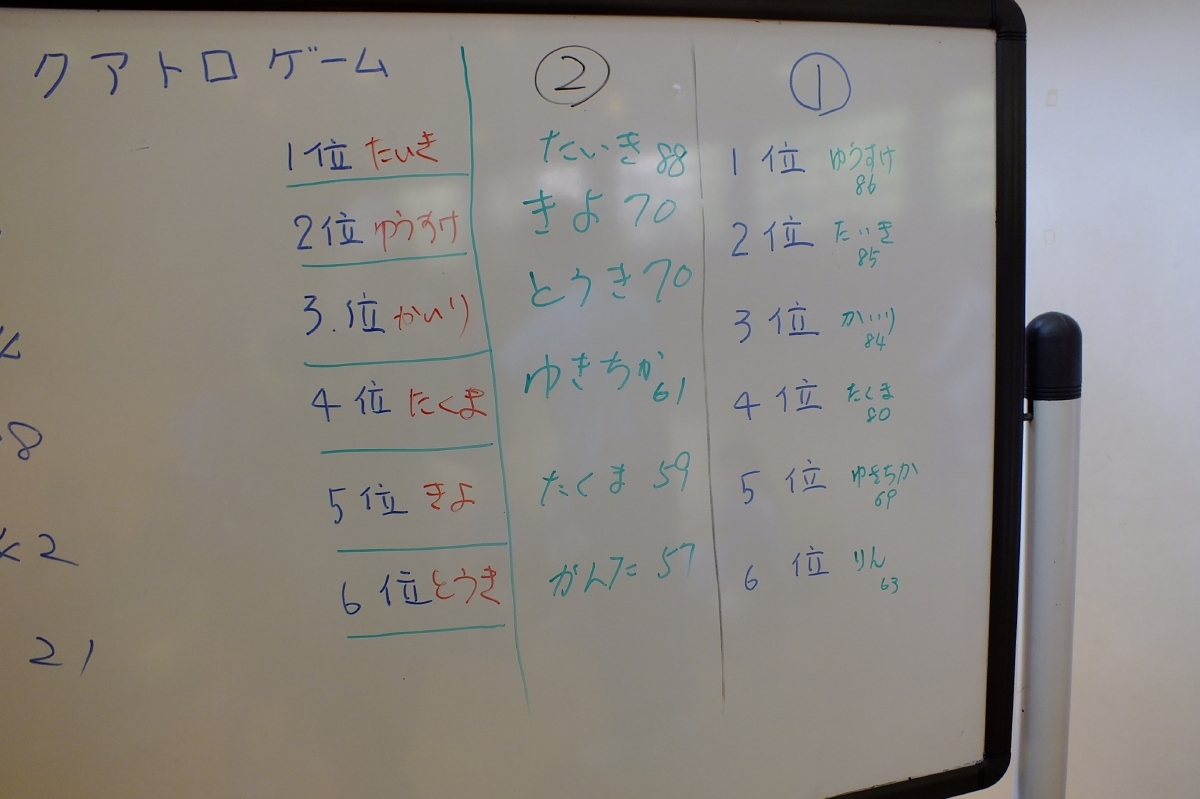 クアトロゲーム
1位 たいき
2位 ゆうすけ
3.位 かいり
4位 たくま
5位 きよ
6位 とうき
②
たいき 88
きよ 70
とうき 70
ゆきちか 61
たくま 59
がんた 57
①
1位 ゆうすけ
86
2位 たいき
85
3位 かいり
84
4位 たくま
80
5位 ゆきちか
69
6位 りん
63
8
2
21